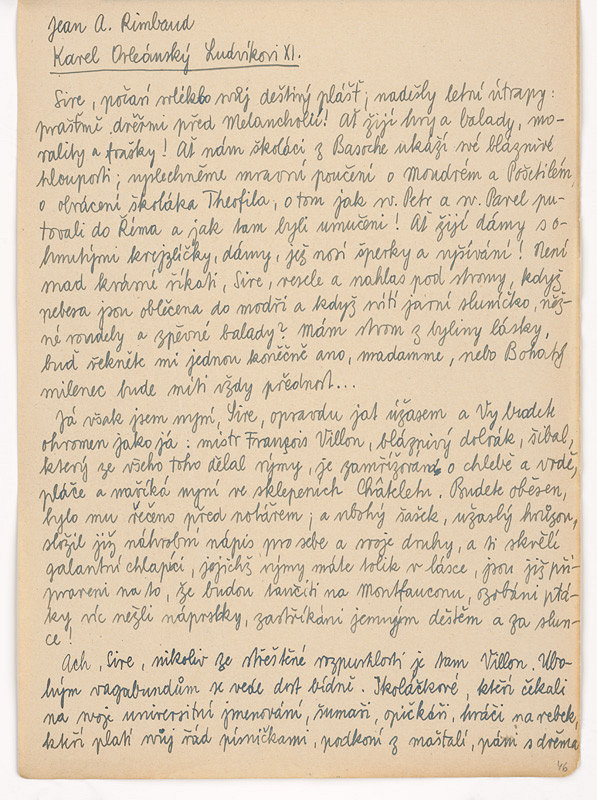 Jean A. Rimbaud
Karel Orleánský Ludvíkovi XI.
Sire, počasí svléklo svůj deštivý plášť; nadešly letní útrapy:
prašťmě dvéřmi před Melancholií! Ať žijí hry a balady, mo-
rality a frašky! Ať nám školáci z Basoche ukáží své bláznivé
hlouposti; vyslechněme mravní poučení o Moudrém a Pošetilém,
o obrácení školáka Theofila, o tom jak sv. Petr a sv. Pavel pu-
tovali do Říma a jak tam byli umučeni! Ať žijí dámy s o-
hrnutými krejzlíčky, dámy, jež nosí šperky a vyšívání! Není
snad krásné říkati, Sire, vesele a nahlas pod stromy, když
nebesa jsou oblečena do modři a když svítí jarní sluníčko, něž-
né rondely a zpěvné balady? Mám strom z byliny lásky,
buď řekněte mi jednou konečně ano, madamme, nebo Bohatý
milenec bude míti vždy přednost...
Já však jsem nyní, Sire, opravdu jat úžasem a Vy budete
ohromen jako já: mistr François Villon, bláznivý dobrák, šibal,
který ze všeho toho dělal rýmy, je zamřížován o chlebě a vodě,
pláče a naříká nyní ve sklepeních Châteletu. Budete oběšen,
bylo mu řečeno před notářem; a ubohý šašek, užaslý hrůzou,
složil již náhrobní nápis pro sebe a svoje druhy, a ti skvělí
galantní chlapíci, jejichž rýmy máte tolik v lásce, jsou již při-
praveni na to, že budou tančiti na Montfauconu, ozobáni ptá-
ky víc nežli náprstky, zastříkáni jemným deštěm a za slun-
ce!
Ach, Sire, nikoliv ze střeštěné rozpustilosti je tam Villon. Ubo-
hým vagabundům se vede dost bídně. Školáčkové, kteří čekali
na svoje universitní jmenování, šumaři, opičkáři, hráči na rebek,
kteří platí svůj řád písničkami, podkoní z maštalí, páni s dvěma
46